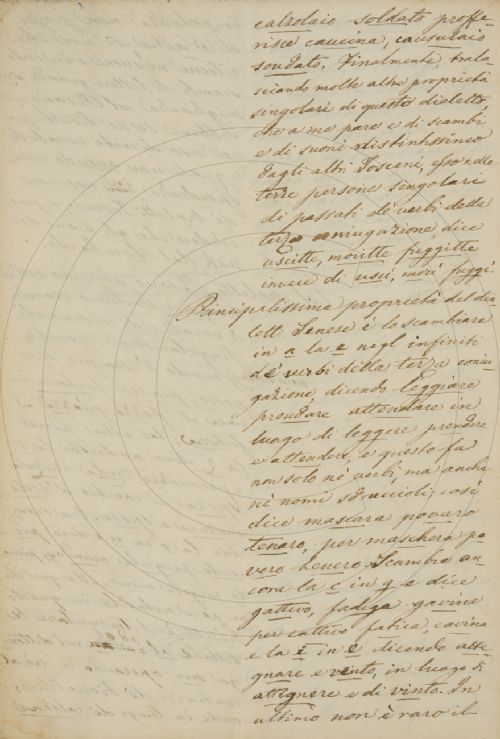 calzolaio soldato proffe-
risce caucina, causulaio
soudato. Finalmente, trala-
sciando molte altre proprietà
singolari di questo dialetto,
che a me pare e di scambi
e di suoni distintissimo
dagli altri Toscani, esso nelle
terze persone singolari
di passati de verbi della
terza coniugazione dice
uscitte, moritte fuggitte
invece di uscì, morì fuggì.
Principalissima proprietà del dia
letto Senese è lo scambiare
in a la e negl infiniti
de verbi della terza coniu
gazione, dicendo leggiare
prendare attendare in
luogo di leggere prendere
e attendere, e questo fa
non solo nè verbi, ma anche
nè nomi sdruccioli: così
dice mascara povaro
tenaro, per maschera po
vero tenero. Scambia an
cora la c in g e dice
gattivo, fadiga gavina
per cattivo fatica, cavina
e la i in e dicendo atte
gnare e vento, in luogo di
attignere e di vinto. In
ultimo non è raro il